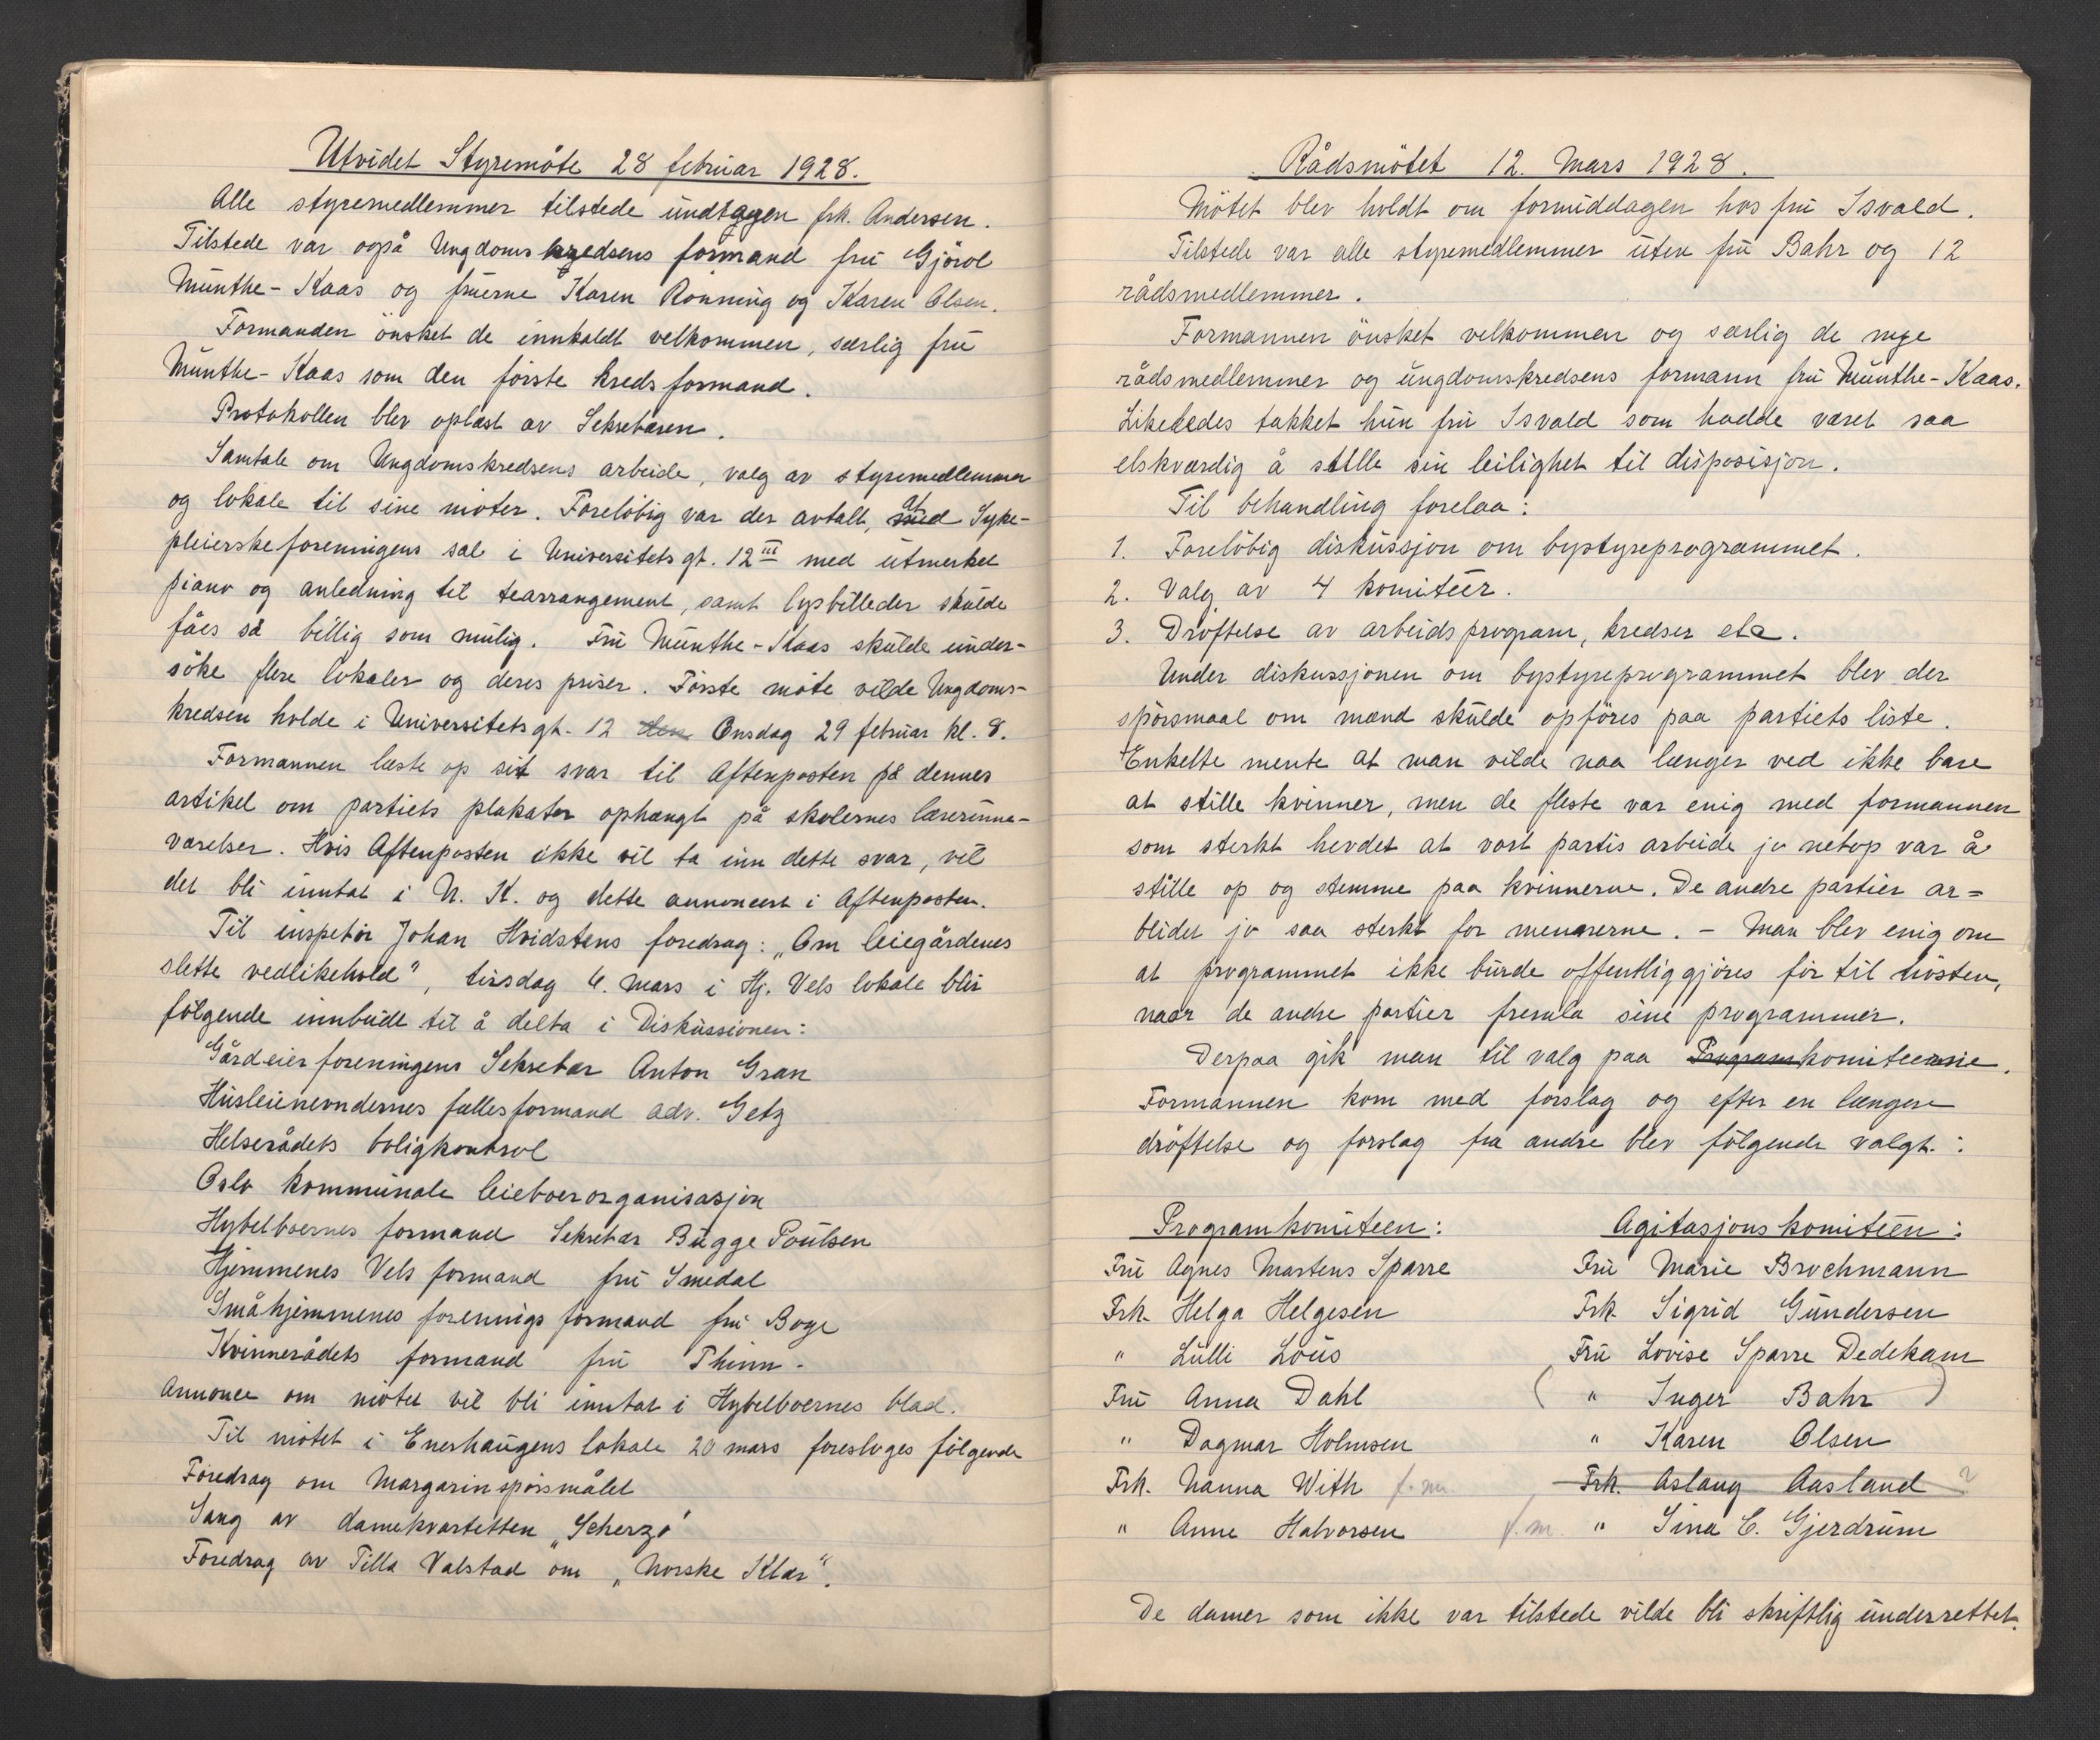 Utvidet Styremöte 28 februar 1928.
Alle styremedlemmer tilstede undtagen frk. Andersen.
Tilstede var også Ungdomskredsens formand fru Gjörol
Munthe-Kaas og fruerne Karen Rönning og Karen Olsen.
Formanden önsket de innkaldt velkommen, særlig fru
Munthe-Kaas som den förste kredsformand.
Protokollen blev oplæst av Sekretæren.
Samtale om Ungdomskredsens arbeide, valg av styremedlemmer
og lokale til sine möter. Forelöbig var der avtalt, at Syke-
pleierskeforeningens sal i Universitetsgt. 12 III med utmerket
piano og anledning til tearrangement, samt lysbilleder skulde
fåes så billig som mulig. Fru Munthe-Kaas skulde under-
söke flere lokaler og deres priser. Förste möte vilde Ungdoms-
kredsen holde i Universitetsgt. 12 den Onsdag 29 februar kl. 8.
Formannen læste op sit svar til Aftenposten på dennes
artikel om partiets plakater ophængt på skolernes lærerinne-
værelser. Hvis Aftenposten ikke vil ta inn dette svar, vil
det bli inntat i N. K. og dette annoncert i Aftenposten.
Til inspektör Johan Hvidstens foredrag: „Om leiegårdenes
slette vedlikehold", tirsdag 6. mars i Hj. Vels lokale blir
fölgende innbudt til å delta i Diskussionen:
Gårdeierforeningens Sekretær Anton Gran
Husleienevndernes fællesformand adv. Getz
Helserådets boligkontrol
Oslo kommunale leieboerorganisasjon
Hybelboernes formand Sekretær Bugge Poulsen
Hjemmenes Vels formand fru Smedal
Småhjemmenes forenings formand fru Boye
Kvinnerådets formand fru Thinn.
Annonce om mötet vil bli inntat i Hybelboernes blad.
Til mötet i Enerhaugens lokale 20 mars foresloges fölgende
Foredrag om Margarinspörsmålet
Sang av damekvartetten „Scherzo"
Foredrag av Tilla Valstad om „Norske Klær".
Rådsmötet 12. Mars 1928.
Mötet blev holdt om formiddagen hos fru Isvald.
Tilstede var alle styremedlemmer uten fru Bahr og 12
rådsmedlemmer.
Formannen önsket velkommen og særlig de nye
rådsmedlemmer og ungdomskredsens formann fru Munthe-Kaas.
Likeledes takket hun fru Isvald som hadde været saa
elskværdig å stille sin leilighet til disposisjon.
Til behandling forelaa:
1. Forelöbig diskussjon om bystyreprogrammet.
2. Valg av 4 komitéer.
3. Dröftelse av arbeidsprogram, kredser etc.
Under diskussjonen om bystyreprogrammet blev der
spörsmaal om mænd skulde opföres paa partiets liste.
Enkelte mente at man vilde naa længer ved ikke bare
at stille kvinner, men de fleste var enig med formannen
som sterkt hevdet at vort partis arbeide jo netop var å
stille op og stemme paa kvinnerne. De andre partier ar=
beidet jo saa sterkt for mennerne. - Man blev enig om
at programmet ikke burde offentliggjöres för til hösten,
naar de andre partier fremla sine programmer.
Derpaa gik man til valg paa Programkomiteerne.
Formannen kom med forslag og efter en længere
dröftelse og forslag fra andre blev fölgende valgt:
Programkomiteen:
Fru Agnes Martens Sparre
Frk. Helga Helgesen
" Lulli Lous
Fru Anna Dahl
" Dagmar Holmsen
Frk. Nanna With f.m.
" Anne Halvorsen
Agitasjonskomitéen:
Fru Marie Brochmann
Frk. Sigrid Gundersen
Fru Lovise Sparre Dedekam
( " Inger Bahr )
" Karen Olsen
Frk. Aslaug Aasland ?
f.m. " Sina C. Gjerdrum
De damer som ikke var tilstede vilde bli skriftlig underrettet.